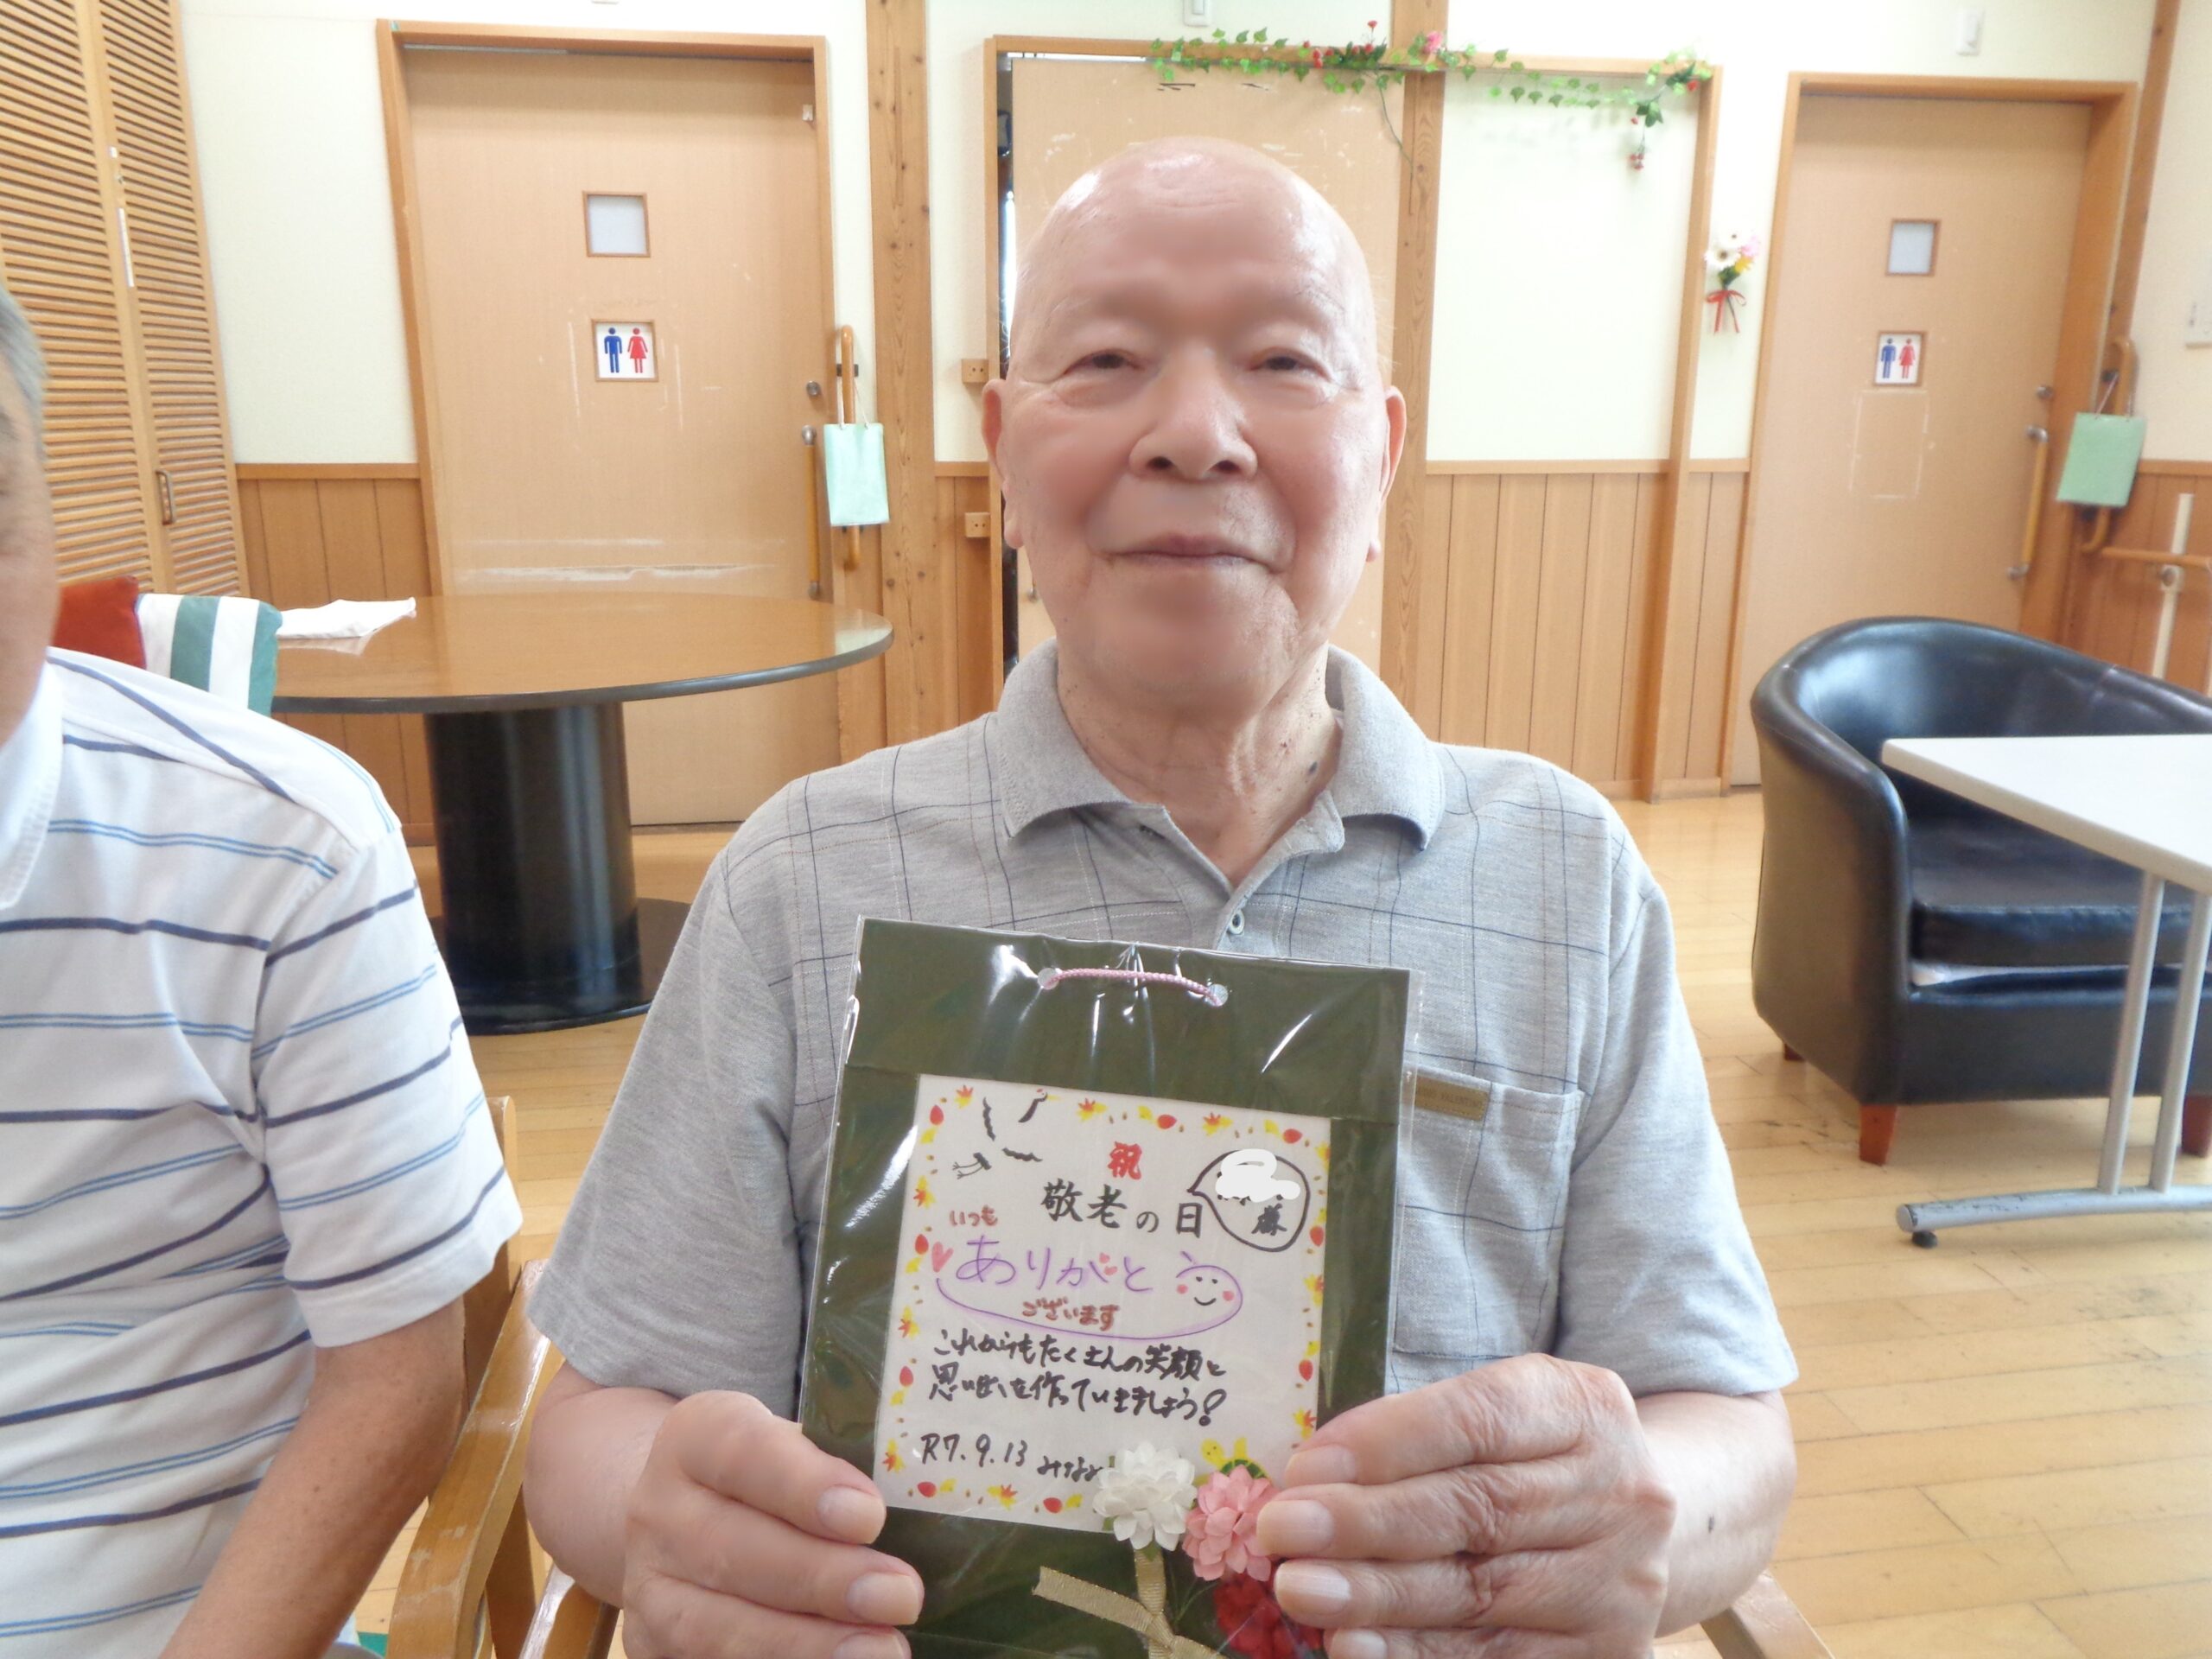 祝
敬老の日
様
いつも
ありがとう
ございます
これからもたくさんの笑顔と
思い出を作っていきましょう!
R7.9.13